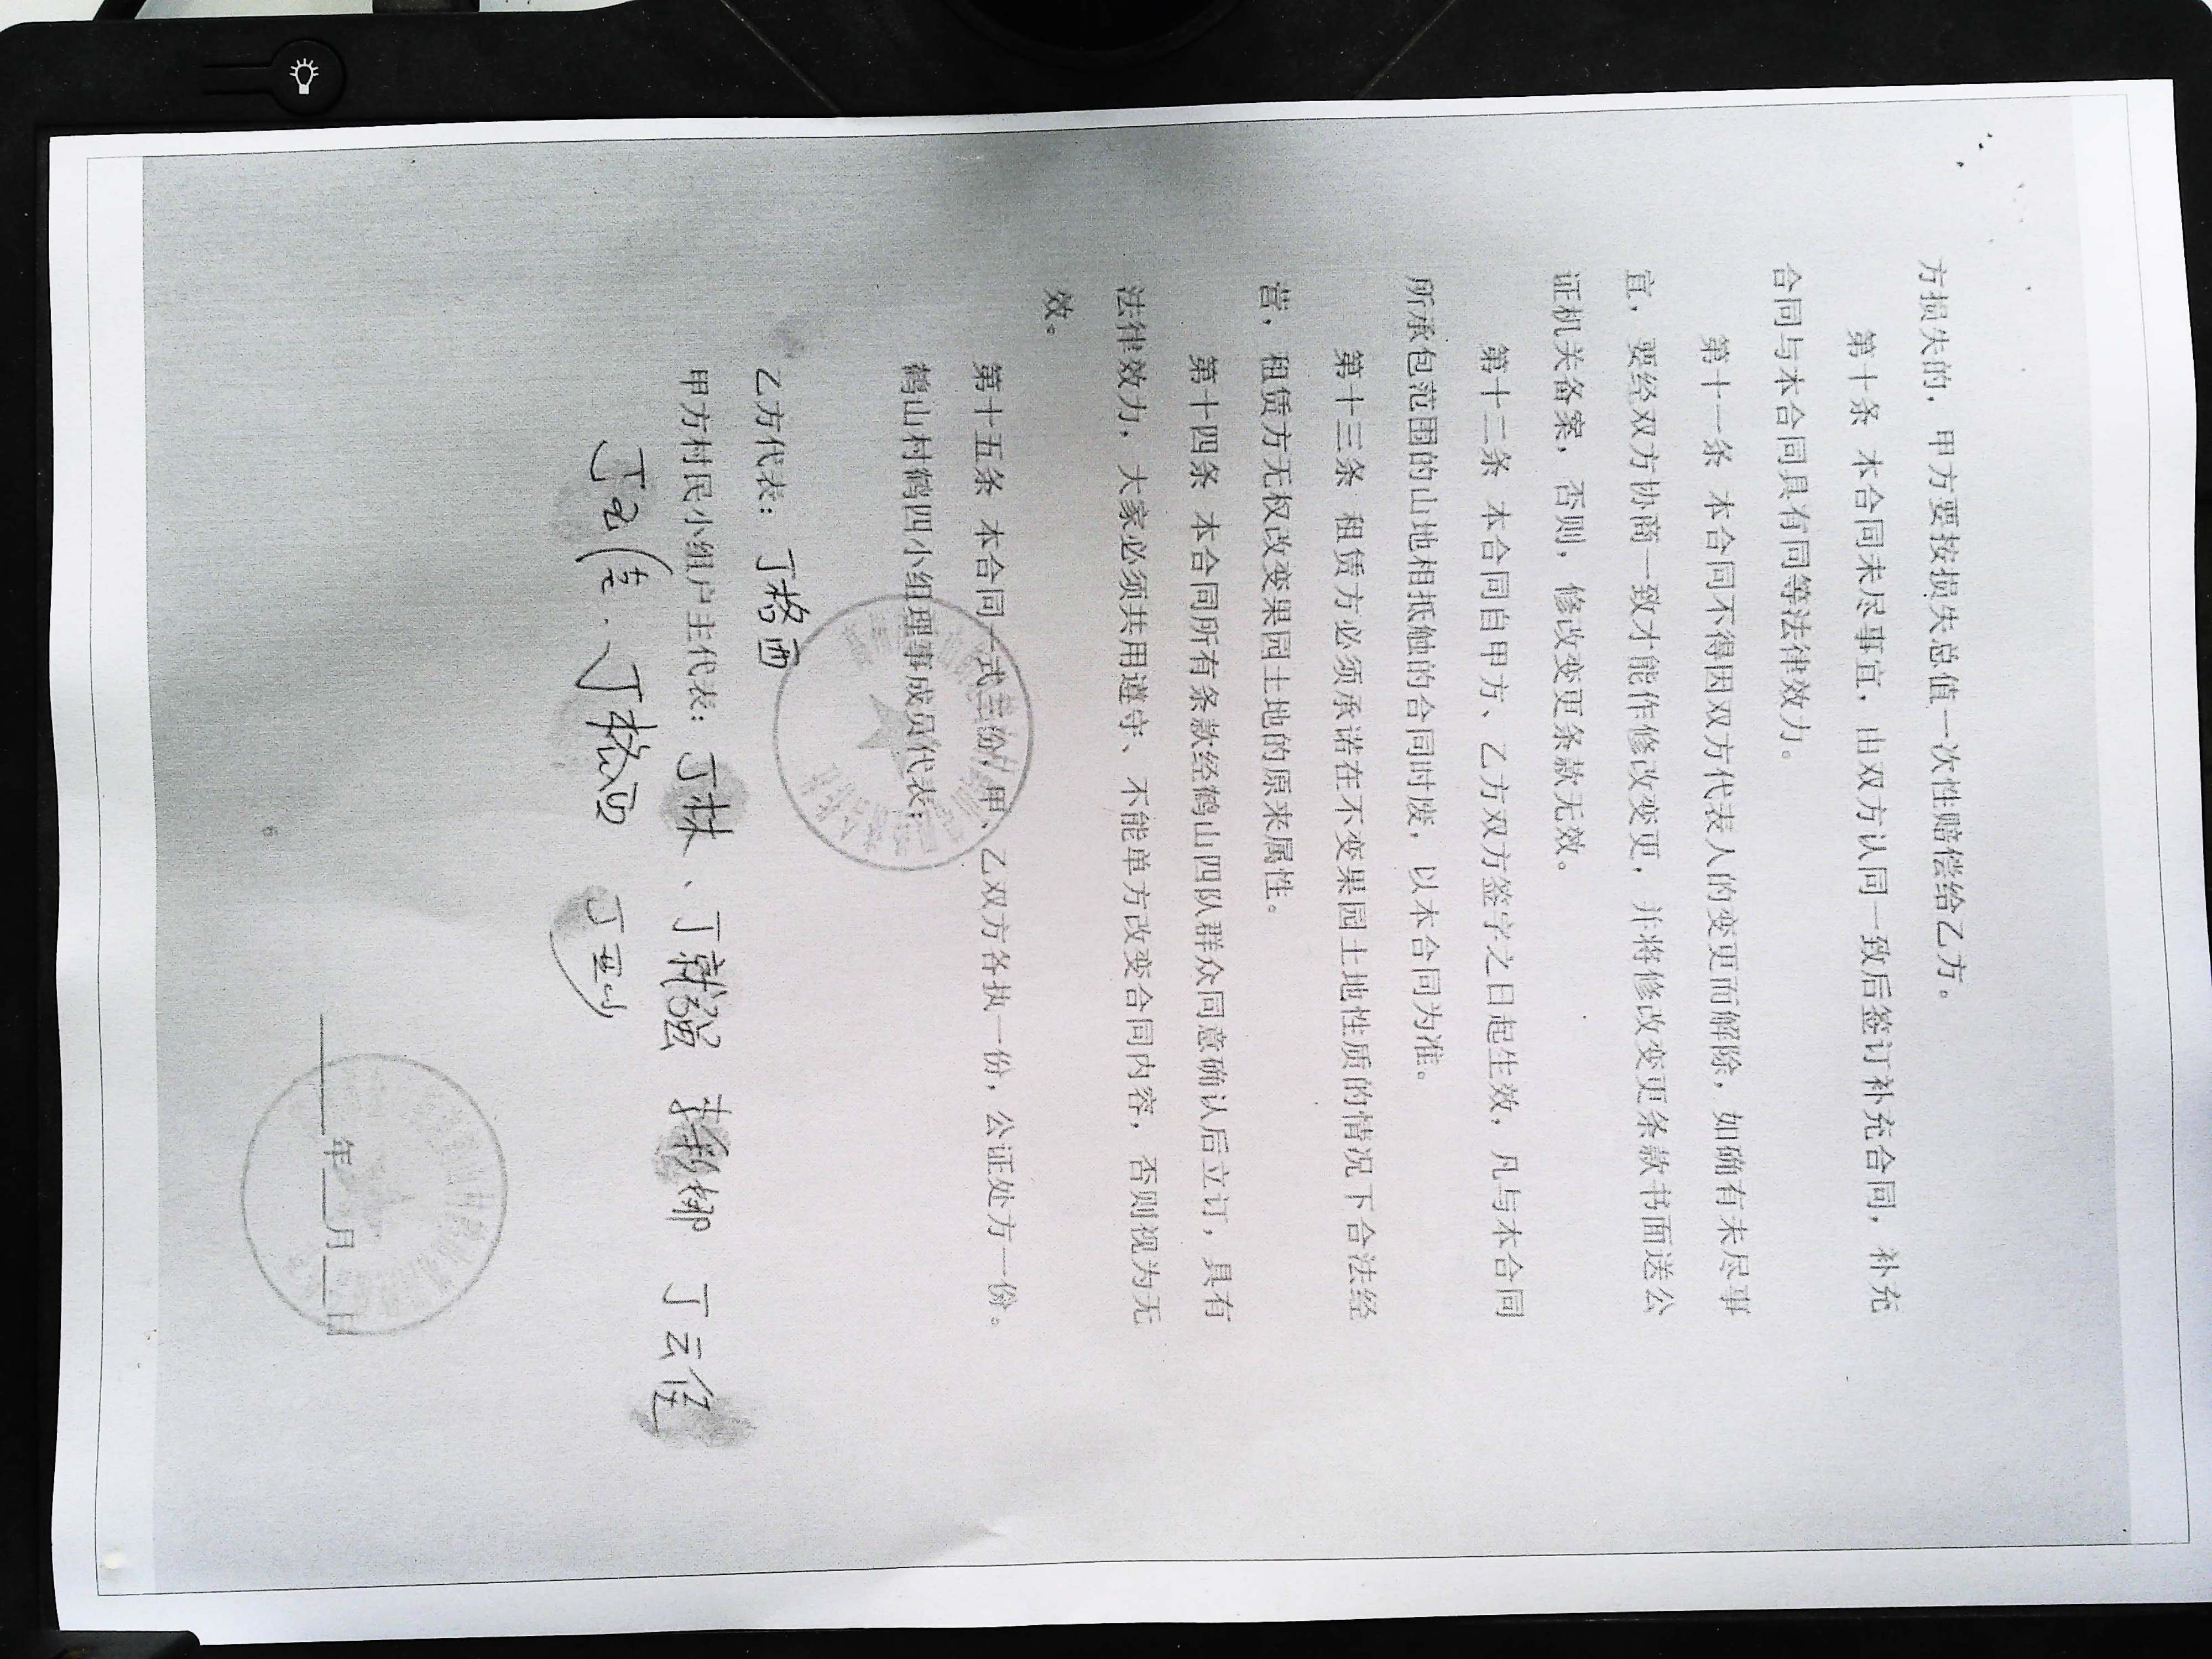 方损失的，甲方要按损失总值一次性赔偿给乙方。
第十条 本合同未尽事宜，由双方认同一致后签订补充合同，补充
合同与本合同具有同等法律效力。
第十一条 本合同不得因双方代表人的变更而解除，如确有未尽事
宜，要经双方协商一致才能作修改变更，并将修改变更条款书面送公
证机关备案，否则，修改变更条款无效。
第十二条 本合同自甲方、乙方双方签字之日起生效，凡与本合同
所承包范围的山地相抵触的合同时废，以本合同为准。
第十三条 租赁方必须承诺在不变果园土地性质的情况下合法经
营，租赁方无权改变果园土地的原来属性。
第十四条 本合同所有条款经鹤山四队群众同意确认后立订，具有
法律效力，大家必须共用遵守、不能单方改变合同内容，否则视为无
效。
第十五条 本合同一式三份，甲、乙双方各执一份，公证处方一份。
鹤山村鹤四小组理事成员代表：
乙方代表：丁格西
甲方村民小组户主代表：丁林、丁就强 丁云佳
丁格西
年 月 日
6